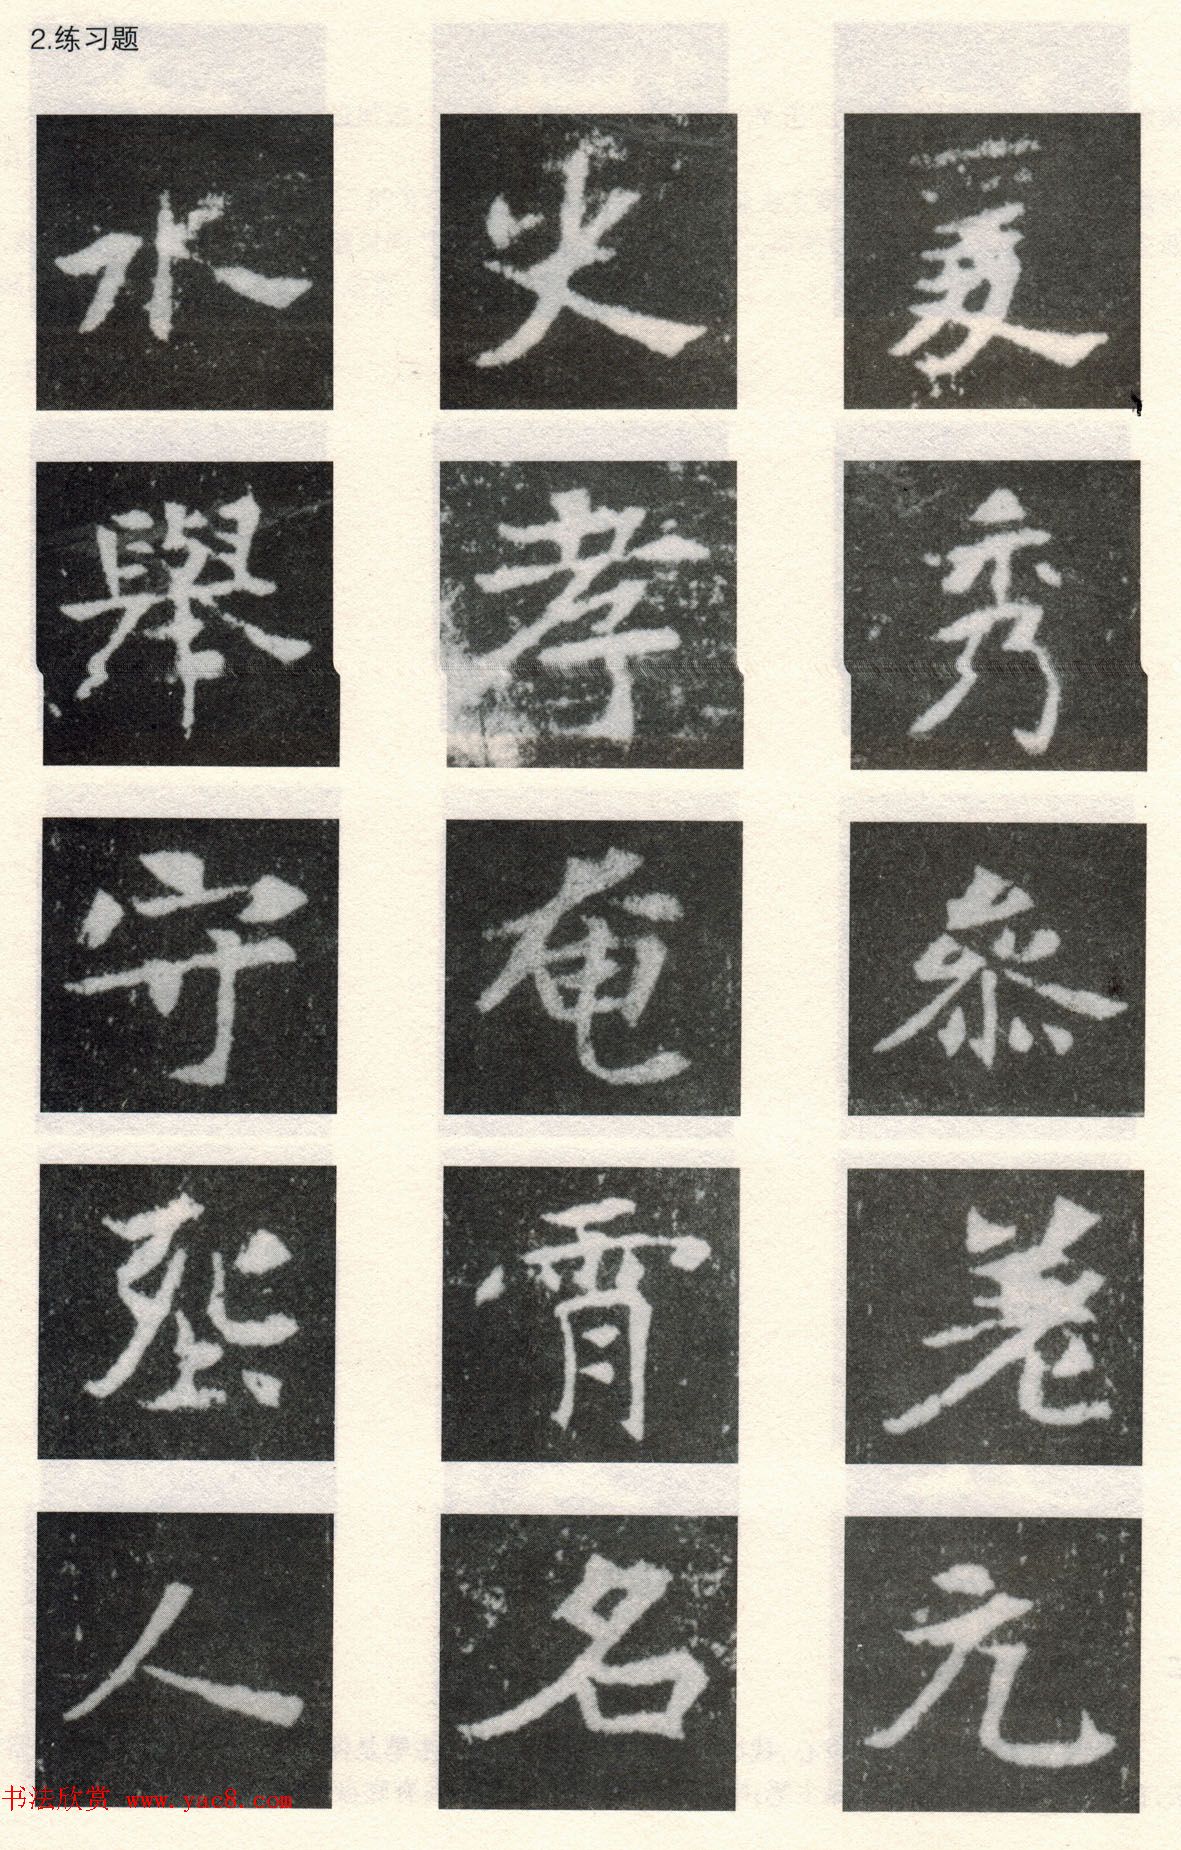 2.练习题
水 火 爰
舉 孝 秀
守 奄 叅
霄
人 名 元
书法欣赏 www.yac8.com